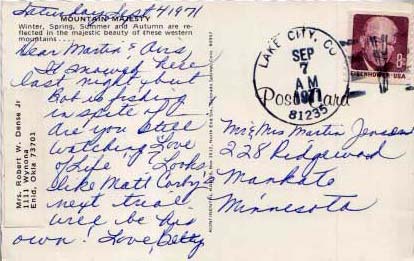 Saturday Sept 4 1971
MOUNTAIN MAJESTY
Winter, Spring, Summer and Autumn are re-
flected in the majestic beauty of these western
mountains ....
Dear Martin &
It snowed here
last night but
Bob is fishing
in spite of it
are you still
watching Love
of Life. Looks
like Matt Corby's
next trial
will be his
own! Love, Betty
Mrs. Robert W. Dense Jr
1111 Wynona
Enid, Okla 73701
LAKE CITY, CO
SEP
7
AM
1971
81235
Postcard
8¢
EISENHOWER · USA
Mr & Mrs Martin Jensen
228 Ridgewood
Mankato
Minnesota